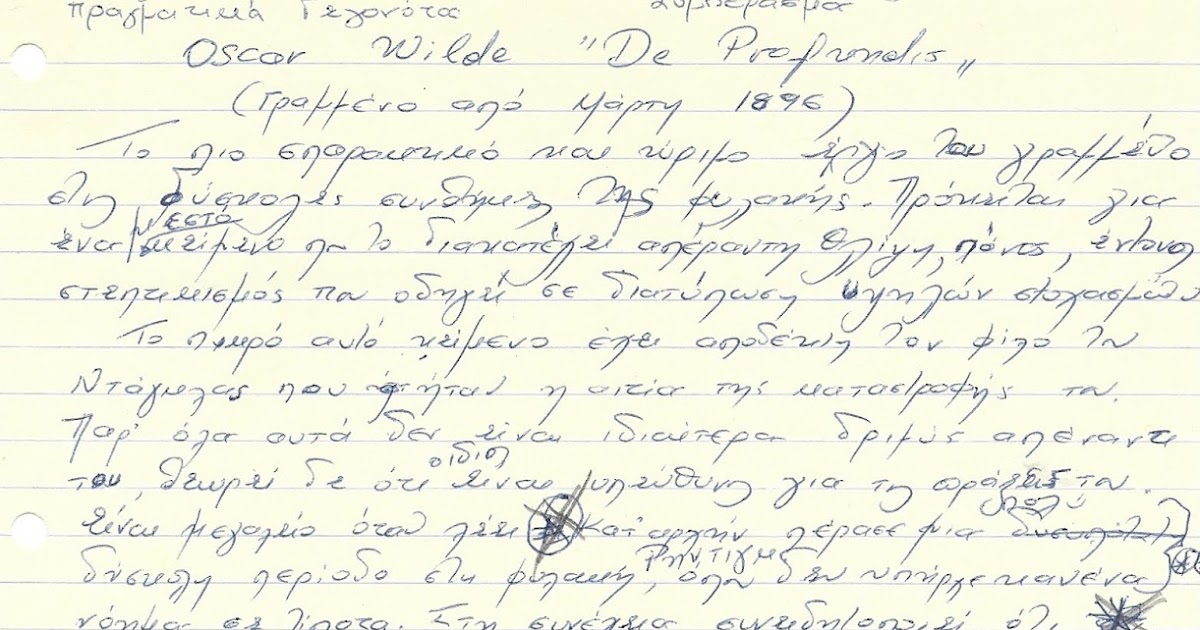 πραγματικά γεγονότα συμπέρασμα
Oscar Wilde "De Profundis"
(Γραμμένο από Μάρτη 1896)
Το πιο σπαρακτικό και ώριμο έργο του γραμμένο
στις δύσκολες συνθήκες της φυλακής. Πρόκειται για
ένα μεστό κείμενο που το διακατέχει απέραντη θλίψη, πόνος, έντονος
σκεπτικισμός που οδηγεί σε διατύπωση υψηλών στοχασμών
Το πικρό αυτό κείμενο έχει αποδέκτη τον φίλο του
Ντάγκλας που ήταν η αιτία της καταστροφής του.
Παρ' όλα αυτά δεν είναι ιδιαίτερα δριμύς απέναντι
του, θεωρεί δε ότι είναι ο ίδιος υπεύθυνος για τις πράξεις του.
Είναι μεγαλείο όταν λέει Κατ' αρχήν πέρασε μια πολύ
δύσκολη περίοδο στη φυλακή Ρήντιγκ, όπου δεν υπήρχε κανένα
νόημα σε τίποτα. Στη συνέχεια συνειδητοποιεί ότι